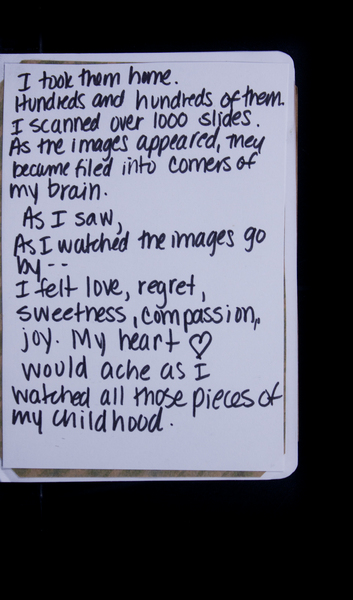 I took them home.
Hundreds and hundreds of them.
I scanned over 1000 slides.
As the images appeared, they
became filed into corners of
my brain.
As I saw,
As I watched the images go
by--
I felt love, regret,
sweetness, compassion,
joy. My heart ♡
would ache as I
watched all those pieces of
my childhood.